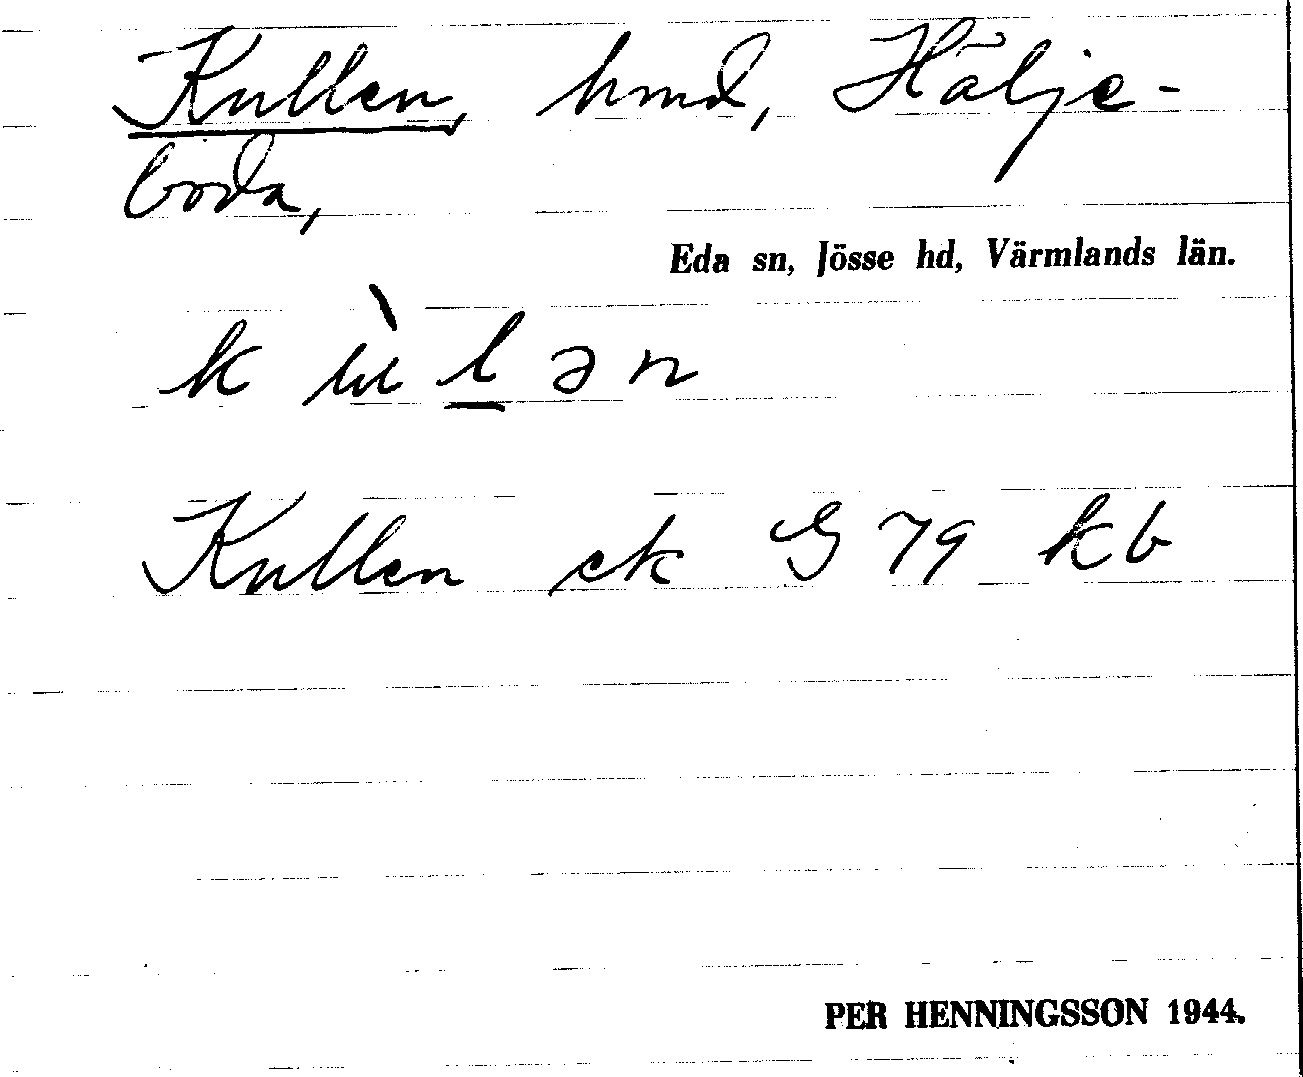 Kullen, hmd, Hälje-
boda,
Eda sn, Jösse hd, Värmlands län.
k ù l ə n
Kullen ek G 79 kb
PER HENNINGSSON 1944.